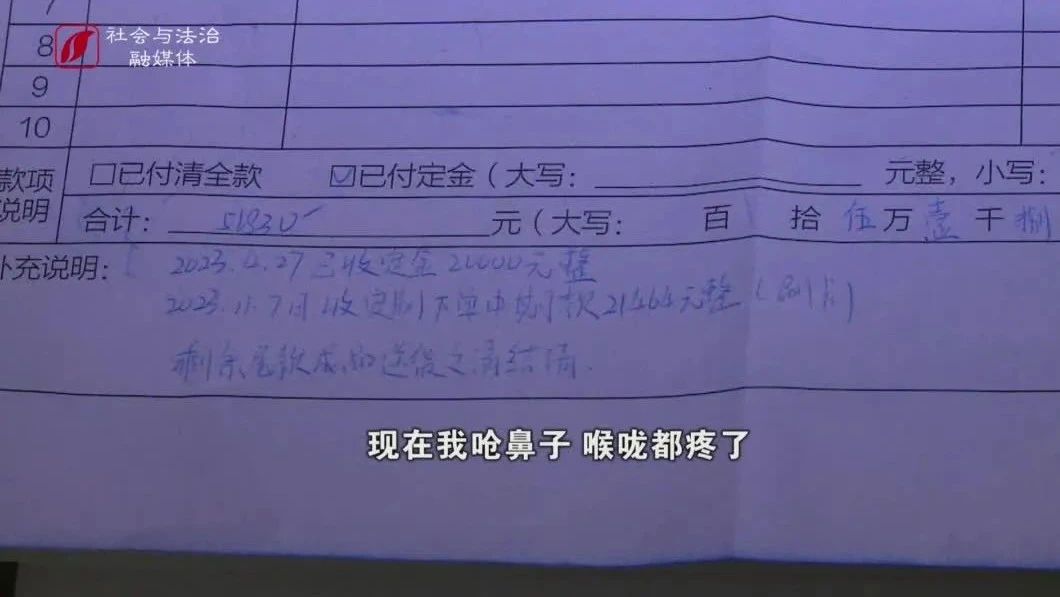 社会与法治
融媒体
7
8
9
10
款项
说明
□已付清全款 ☑已付定金（大写： 元整，小写：
合计： 51830 元（大写： 百 拾 伍万壹千捌
补充说明： 2023. .27 已收定金20000元整
2023.11.7日收定制下单中期款21464元整（刷卡）
剩余尾款 送货之 结清.
现在我呛鼻子 喉咙都疼了